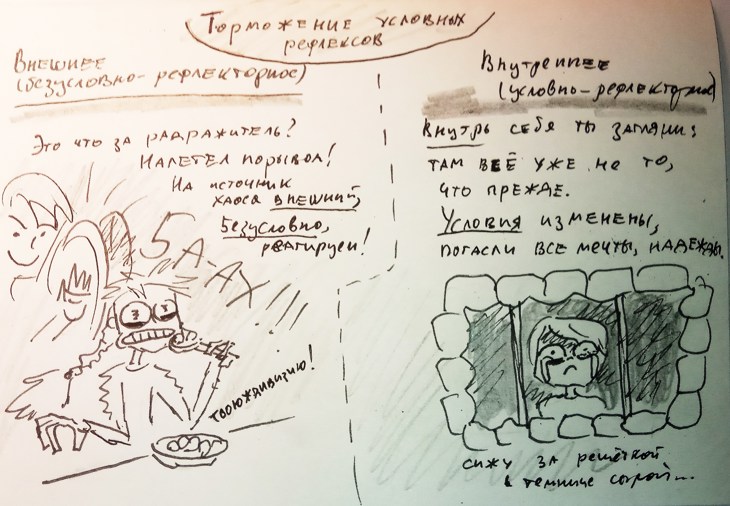 Торможение условных
рефлексов
Внешнее
(безусловно-рефлекторное)
Это что за раздражитель?
Налетел порывом!
На источник
хаоса внешний,
Безусловно,
реагируем!
БА-АХ!!!
твоюждивизию!
Внутреннее
(условно-рефлекторное)
Внутрь себя ты загляни:
там всё уже не то,
что прежде.
Условия изменены,
погасли все мечты, надежды.
сижу за решёткой
в темнице сырой...